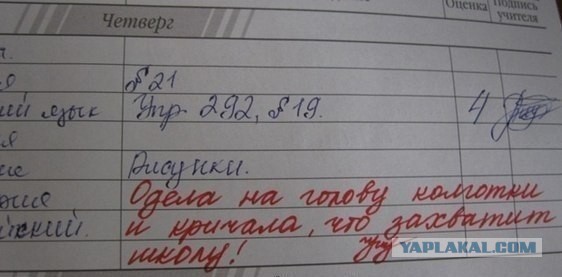 Четверг
Оценка
Подпись
учителя
§ 21
ий язык Упр 292, § 19. 4
Рисунки.
Одела на голову колготки
и кричала, что захватит
школу!
YAPLAKAL.COM